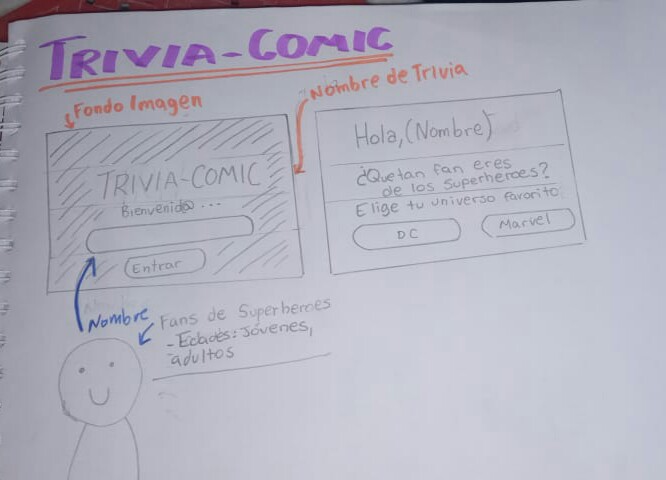 TRIVIA-COMIC
Fondo Imagen
Nombre de Trivia
TRIVIA-COMIC
Bienvenid@ ...
Entrar
Hola, (Nombre)
¿Que tan fan eres
de los Superheroes?
Elige tu universo favorito:
DC
Marvel
Nombre
Fans de Superheroes
- Edades: Jóvenes,
adultos